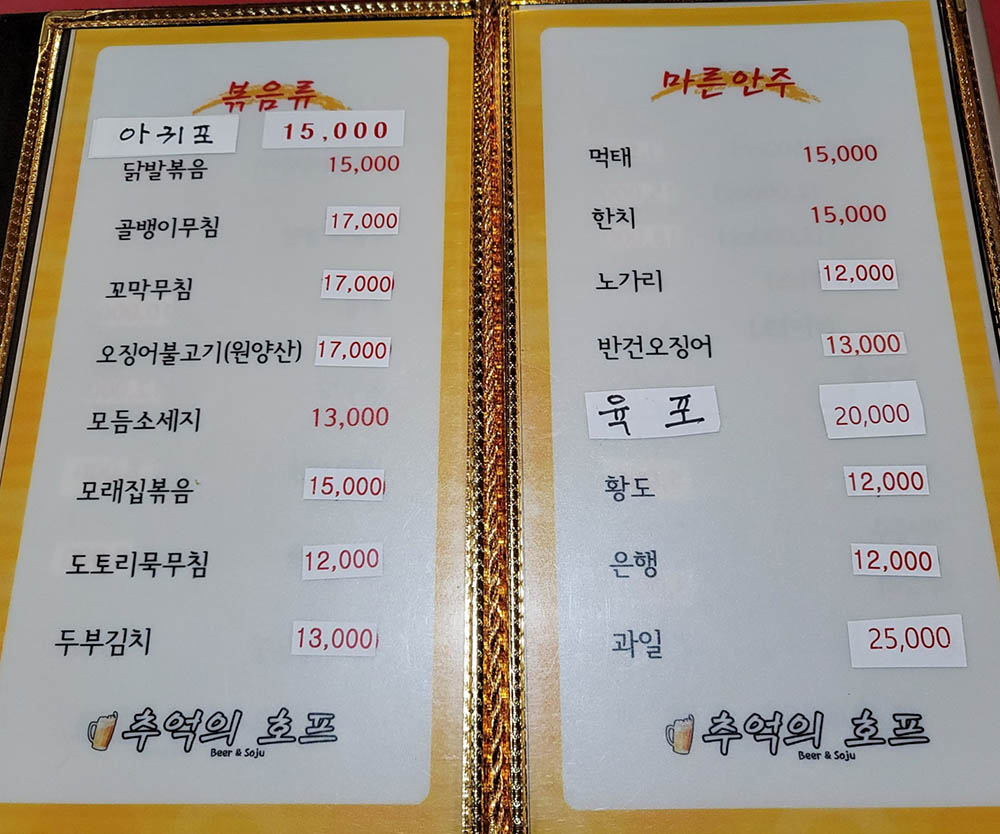 볶음류
아귀포 15,000
닭발볶음 15,000
골뱅이무침 17,000
꼬막무침 17,000
오징어불고기(원양산) 17,000
모듬소세지 13,000
모래집볶음 15,000
도토리묵무침 12,000
두부김치 13,000
추억의 호프
Beer & Soju
마른안주
먹태 15,000
한치 15,000
노가리 12,000
반건오징어 13,000
육포 20,000
황도 12,000
은행 12,000
과일 25,000
추억의 호프
Beer & Soju